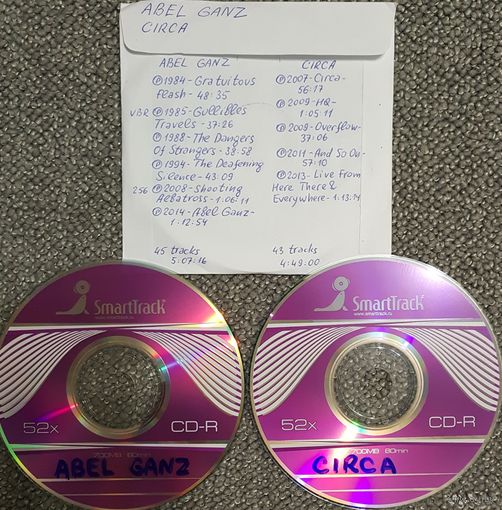 ABEL GANZ
CIRCA
ABEL GANZ
℗1984-Gratuitous
flash-48:35
VBR ℗1985-Gullibles
Travels-37:26
℗1988-The Dangers
Of Strangers-38:58
℗1994-The Deafening
Silence-43:09
256 ℗2008-Shooting
Albatross-1:06:11
℗2014-Abel Ganz-
1:12:54
45 tracks
5:07:16
CIRCA
℗2007-Circa-
56:17
℗2009-HQ-
1:05:11
℗2009-Overflow-
37:06
℗2011-And So On-
57:10
℗2013-Live From
Here There &
Everywhere-1:13:14
43 tracks
4:49:00
SmartTrack
www.smarttrack.ru
52x
CD-R
700MB 80min
ABEL GANZ
SmartTrack
www.smarttrack.ru
52x
CD-R
700MB 80min
CIRCA